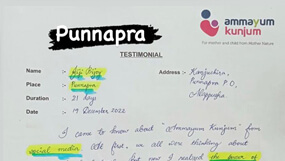 Punnapra
ammayum
kunjum
For Mother and Child from Mother Nature
TESTIMONIAL
Name : Jiji Shijoy
Address : Kanjachira,
Place : Punnapra
Punnapra P.O,
Duration : 21 days
Alappuzha.
Date : 19 December 2022
I came to know about "Ammayum Kunjum" from
social media. At first, we all were thinking about
but now I realised the power